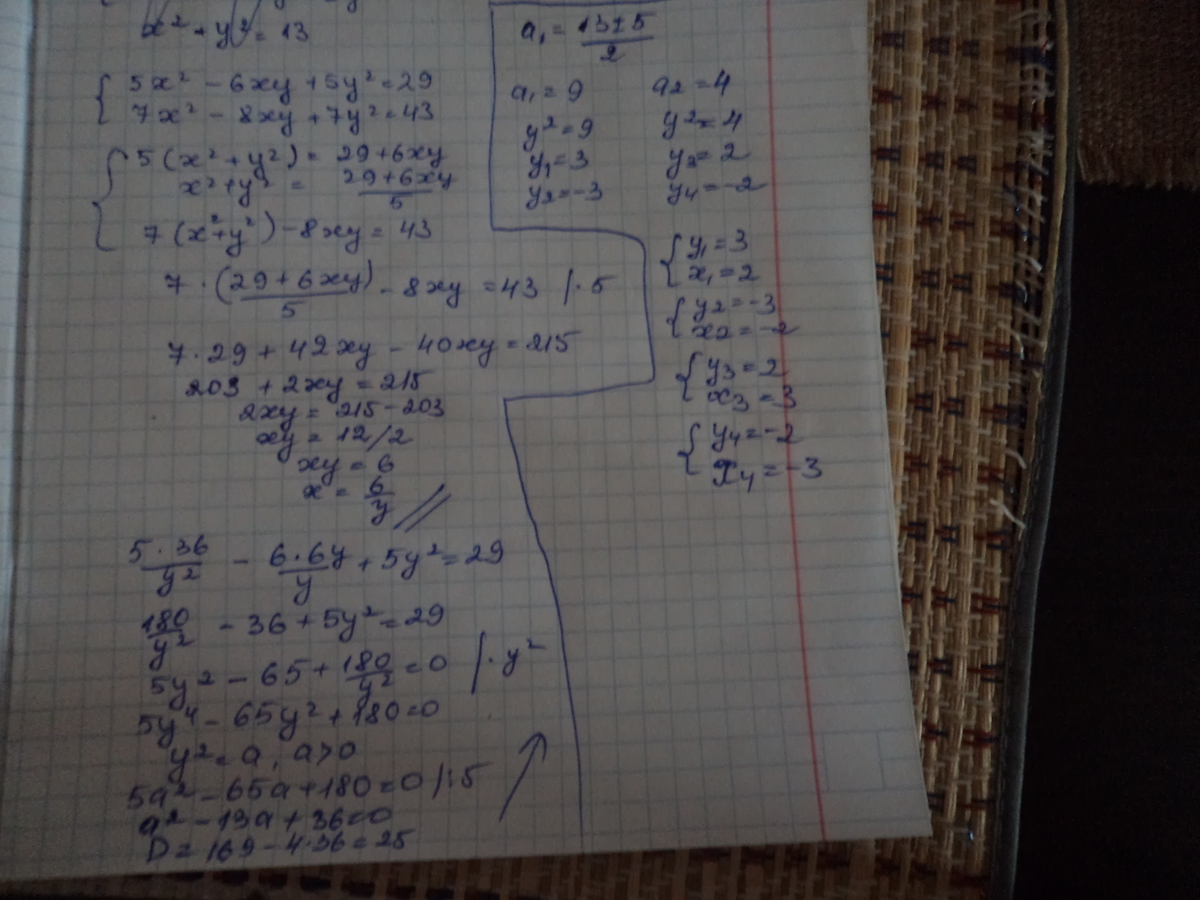 x² + y² = 13
{ 5x² - 6xy + 5y² = 29
7x² - 8xy + 7y² = 43
{ 5(x² + y²) = 29 + 6xy
x² + y² = (29 + 6xy)/5
7(x² + y²) - 8xy = 43
7 · (29 + 6xy)/5 - 8xy = 43 | · 5
7 · 29 + 42xy - 40xy = 215
203 + 2xy = 215
2xy = 215 - 203
xy = 12/2
xy = 6
x = 6/y
5·36/y² - 6·6y/y + 5y² = 29
180/y² - 36 + 5y² = 29
5y² - 65 + 180/y² = 0 | · y²
5y⁴ - 65y² + 180 = 0
y² = a, a > 0
5a² - 65a + 180 = 0 | : 5
a² - 13a + 36 = 0
D = 169 - 4·36 = 25
a₁ = (13 ± 5)/2
a₁ = 9 a₂ = 4
y² = 9 y² = 4
y₁ = 3 y₃ = 2
y₂ = -3 y₄ = -2
{ y₁ = 3
x₁ = 2
{ y₂ = -3
x₂ = -2
{ y₃ = 2
x₃ = 3
{ y₄ = -2
x₄ = -3